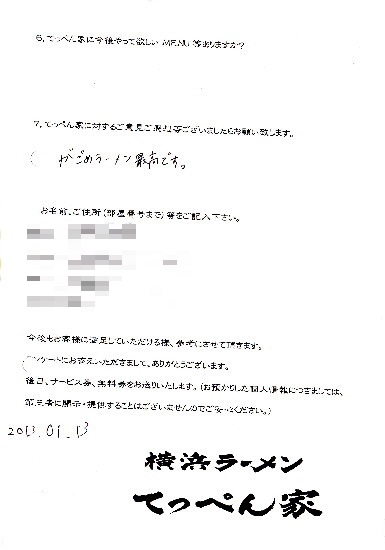 6. てっぺん家に今後やって欲しいMENU等ありますか？
7. てっぺん家に対するご意見ご要望等ございましたらお願い致します。
がごめラーメン最高です。
お名前、ご住所(部屋番号まで)等をご記入下さい。
今後もお客様に満足していただける様、参考にさせて頂きます。
アンケートにお答えいただきまして、ありがとうございます。
後日、サービス券、無料券をお送りいたします。(お預かりした個人情報につきましては、
第三者に開示・提供することはございませんのでご安心ください。)
2013.01.13
横浜ラーメン
てっぺん家